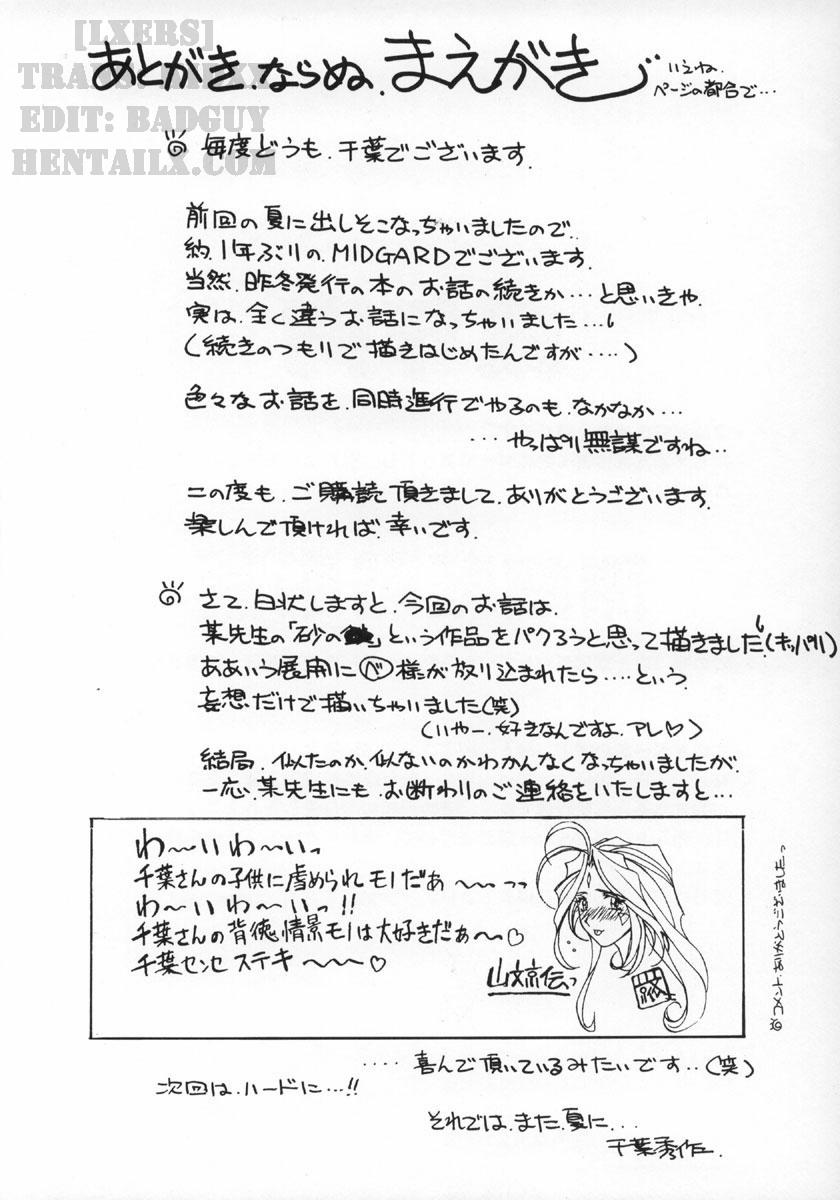 [LXERS]
EDIT: BADGUY
HENTAILX.COM
あとがき、ならぬ、まえがき
いえね、
ページの都合で…
毎度どうも、千葉でございます。
前回の夏に出しそこなっちゃいましたので、
約、1年ぶりの、MIDGARDでございます。
当然、昨冬発行の本のお話の続きか…と思いきや、
実は、全く違うお話になっちゃいました…
(続きのつもりで描きはじめたんですが‥‥)
色々なお話を、同時進行でやるのも、なかなか…
…やっぱり無謀ですね‥
この度も、ご購読頂きまして、ありがとうございます。
楽しんで頂ければ、幸いです。
さて、白状しますと、今回のお話は、
某先生の「砂の」という作品をパクろうと思って描きました。(キッパリ)
ああいう展開にベ様が放り込まれたら‥‥という、
妄想だけで描いちゃいました(笑)
(いやー、好きなんですよ、アレ♡)
結局、似たのか、似ないのかわかんなくなっちゃいましたが、
一応、某先生にも、お断わりのご連絡をいたしますと…
わ〜いわ〜いっ
千葉さんの子供に虐められモノだぁ〜〜っっ
わ〜いわ〜いっ!!
千葉さんの背徳情景モノは大好きだぁ〜♡
千葉センセステキ〜〜〜♡
山文京伝っ
コメント、ありがとうございましたっ
‥‥喜んで頂いているみたいです‥(笑)
次回は、ハードに…!!
それでは、また、夏に…
千葉秀作